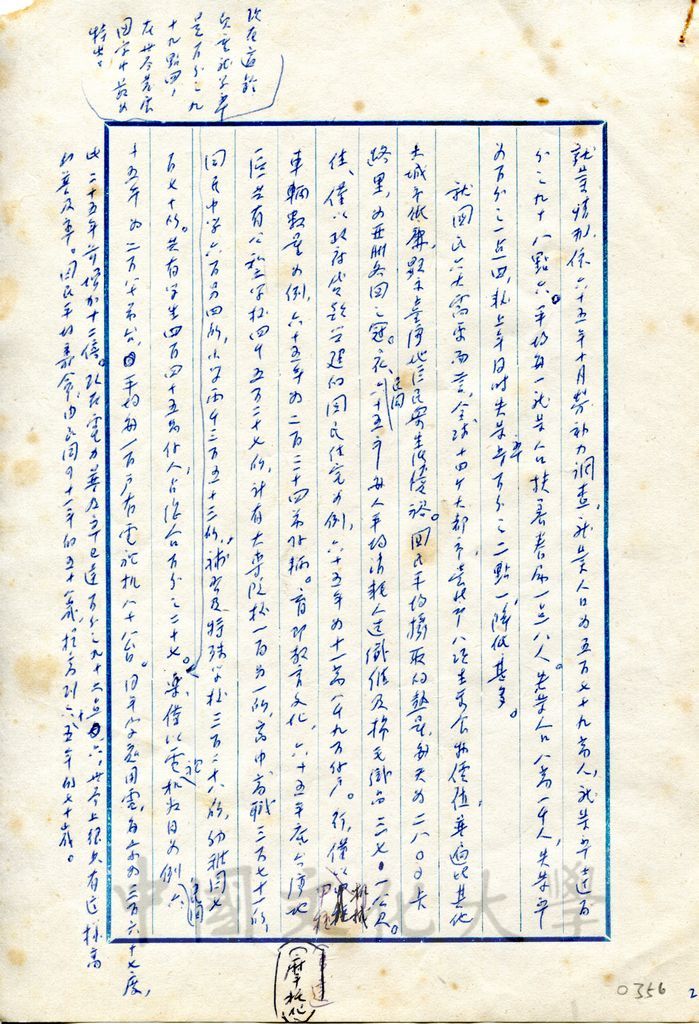 就業情形依六十五年十月勞動力調查,就業人口為五百七十九萬人,就業率達百
分之九十八點六。平均每一就業人口扶養眷屬一點八人。失業人口八萬一千人,失業率
為百分之一點四,較上年同時失業率百分之二點一降低甚多。
就國民六大需要而言,全球十四個大都市臺北市八項主要食物價值普遍比其他
大城市低廉,顯示臺灣地區民眾生活優裕。國民平均攝取的熱量,每天為二八〇〇卡
路里,為亞洲各國之冠。衣,民國六十五年每人平均消耗人造纖維及棉毛織品一三七〇一公克。
住,僅以政府貸款興建的國民住宅為例,六十五年為十一萬一千九百戶。行,僅以機械
車輛數量為例,六十五年為二百二十四萬餘輛。育即教育文化,六十五年底台灣地
區共有公私立學校四千五百二十七所,計有大專院校一百另一所,高中高職三百七十一所,
國民中學六百另四所,小學兩千三百五十三所,補習及特殊學校三百二十八所,幼稚園七
百七十所。共有學生四百四十五萬餘人,占總人口百分之二十七。樂僅以電視機為例,民國六
十五年為二百八十萬台,平均每一百戶有電視機八十八台。同年家庭用電,每戶為二百六十七度,
比二十五年前增加十二倍。現在電力普及率已達百分之九十六點六,世界上很少有這樣高
的普及率。國民平均壽命,由民國四十一年的五十八歲,提高到六十五年的七十歲。
現在適齡
兒童就學率
是百分之九
十九點四,
在世界各國
國家中最為
特出。
(摩托化)
中國文化大學
0356
2